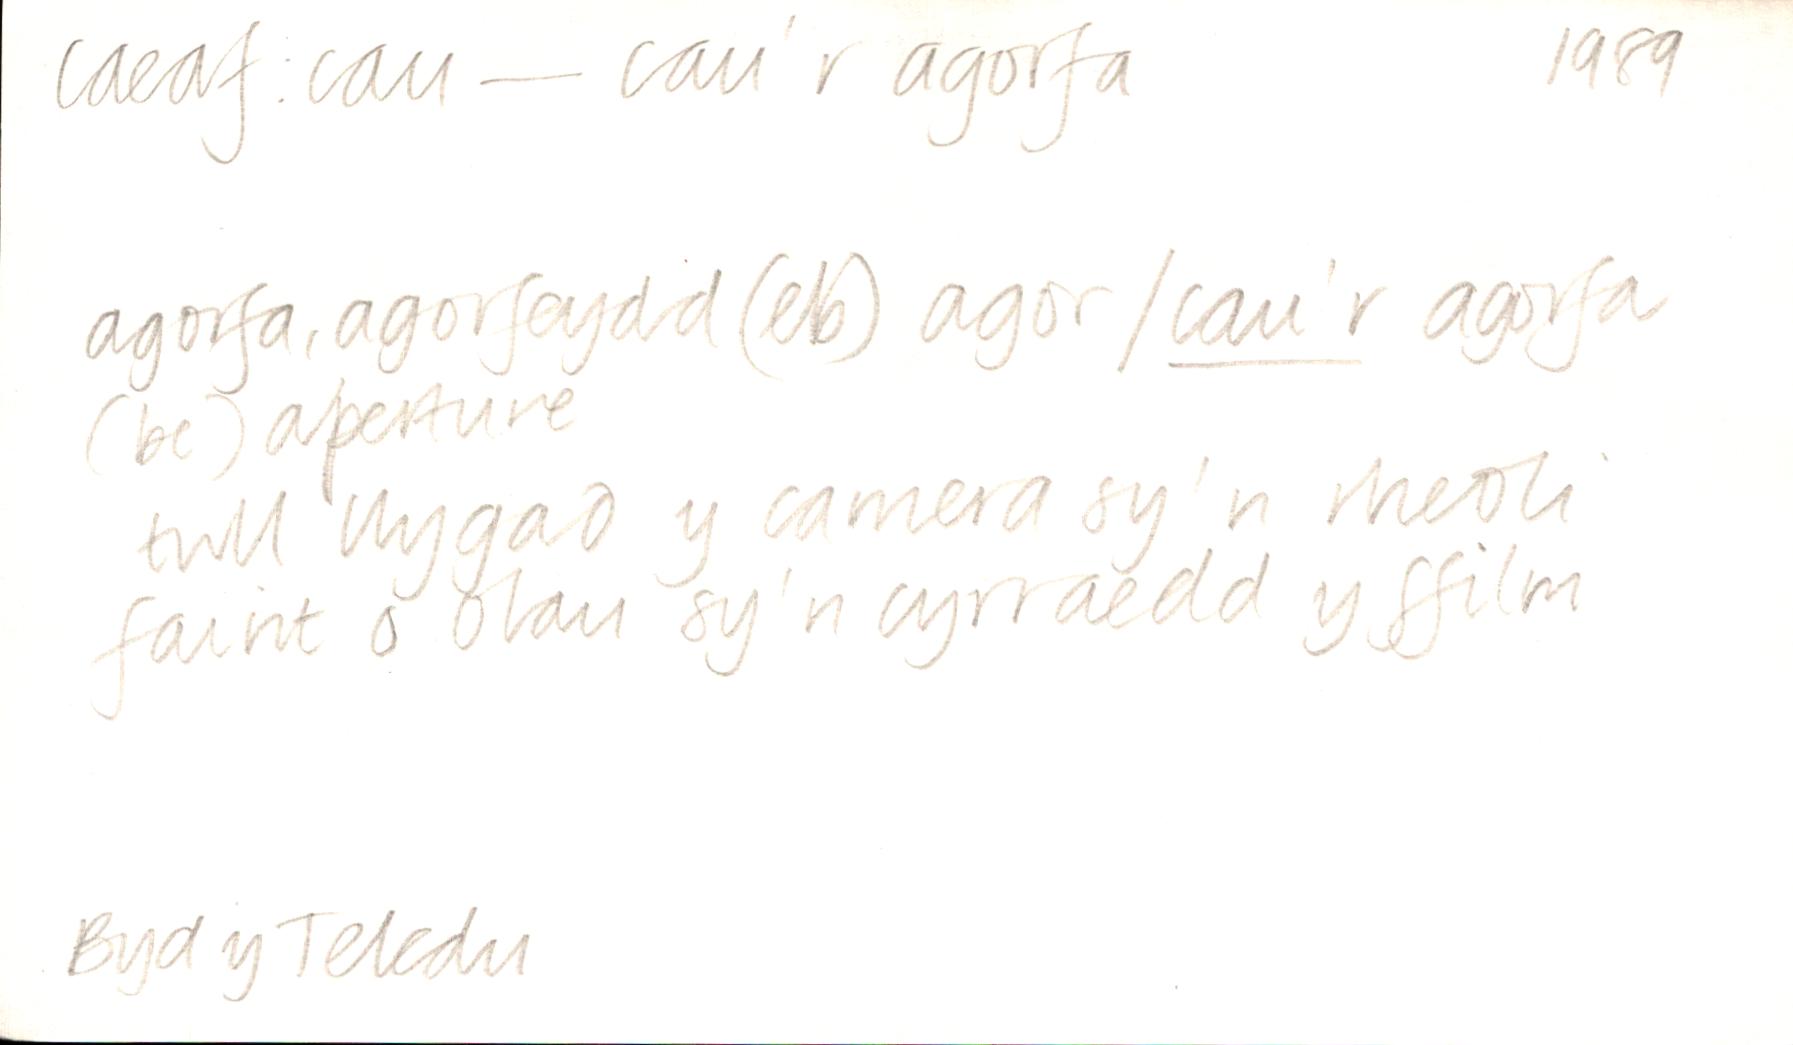 caeaf: cau — cau'r agorfa 1989
agorfa, agorfeydd (eb) agor/cau'r agorfa
(be) aperture
twll llygad y camera sy'n rheoli
faint o olau sy'n cyrraedd y ffilm
Byd y Teledu